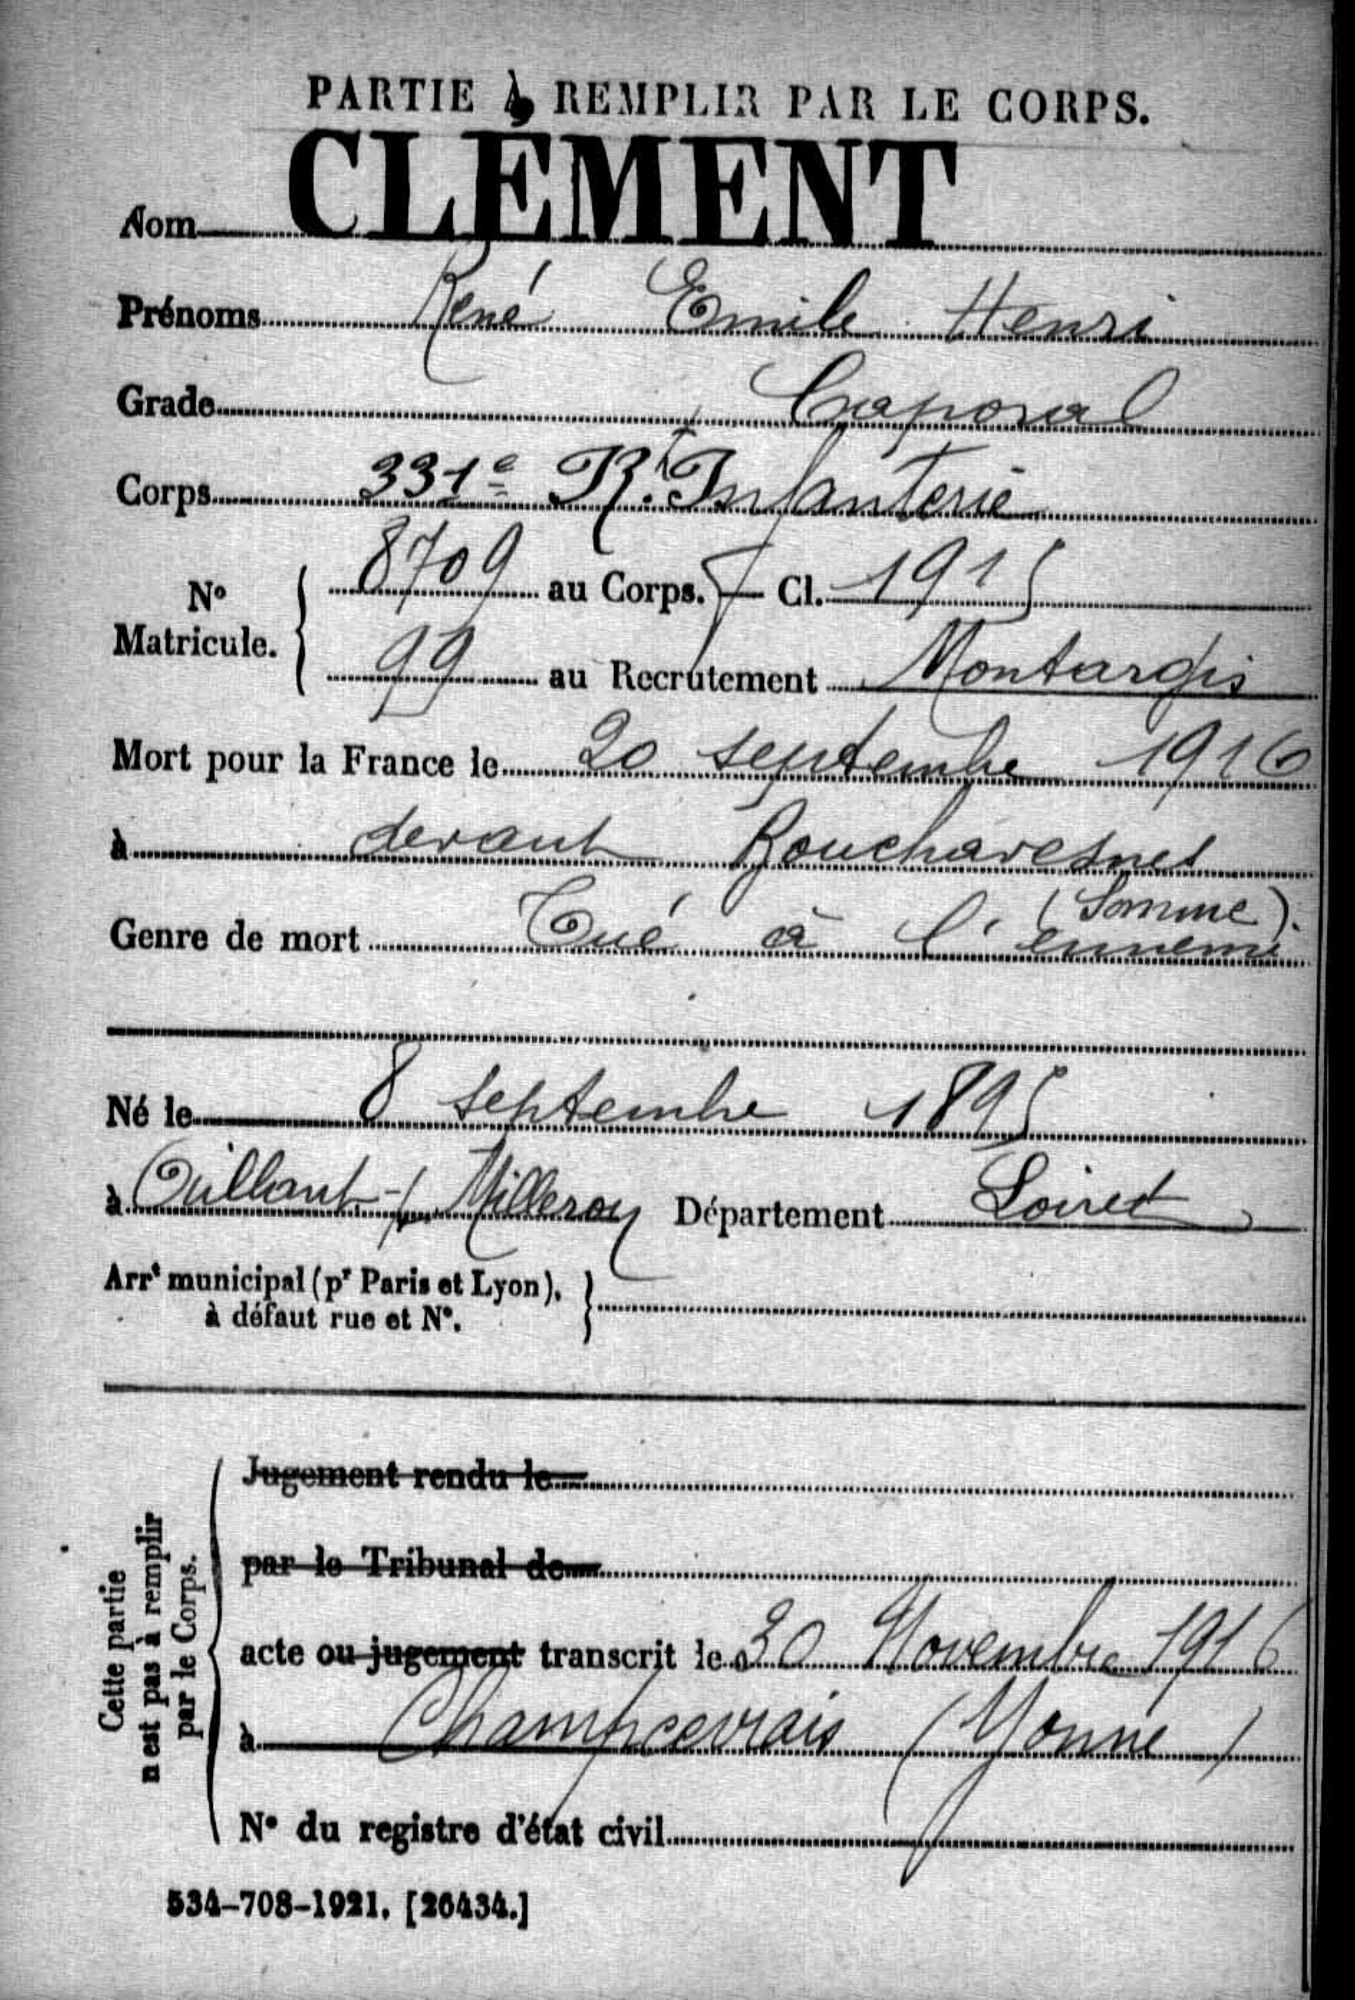 PARTIE À REMPLIR PAR LE CORPS.
Nom CLÉMENT
Prénoms René Emile Henri
Grade Caporal
Corps 331e R.t Infanterie
No Matricule. { 8709 au Corps. — Cl. 1915
99 au Recrutement Montargis
Mort pour la France le 20 septembre 1916
à devant Bouchavesnes
(Somme).
Genre de mort Tué à l'ennemi
Né le 8 septembre 1895
à Milleroy Département Loiret
Arrt municipal (pr Paris et Lyon), }
à défaut rue et No.
Cette partie
n'est pas à remplir
par le Corps.
Jugement rendu le
par le Tribunal de
acte ou jugement transcrit le 30 Novembre 1916
à Champcevrais (Yonne)
No du registre d'état civil
534-708-1921. [26434.]